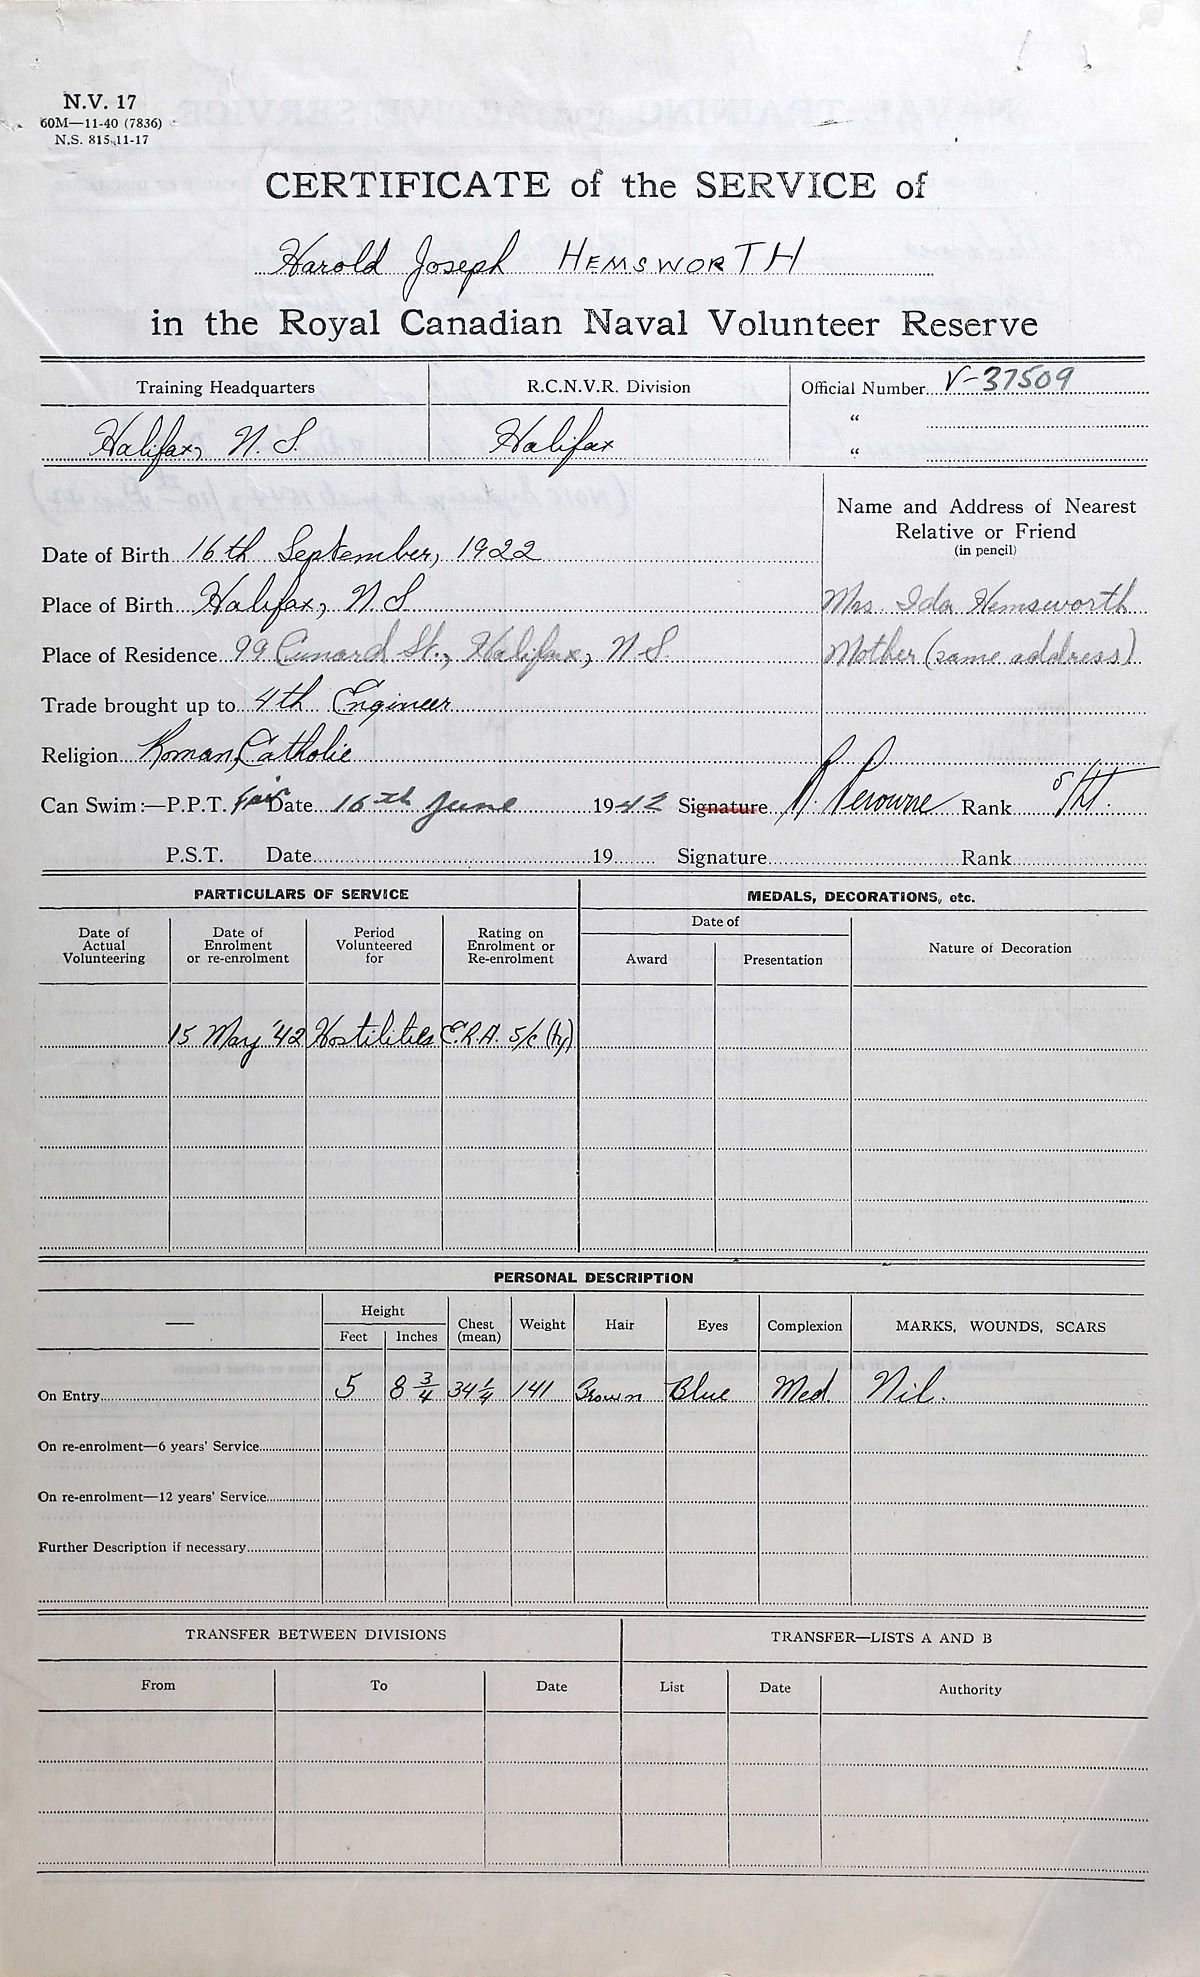 N.V. 17
60M—11-40 (7836)
N.S. 815-11-17
CERTIFICATE of the SERVICE of
Harold Joseph HEMSWORTH
in the Royal Canadian Naval Volunteer Reserve
Training Headquarters
R.C.N.V.R. Division
Official Number V-37509
"
"
Halifax, N.S.
Halifax
Name and Address of Nearest
Relative or Friend
(in pencil)
Date of Birth 16th September, 1922
Place of Birth Halifax, N.S
Mrs. Ida Hemsworth
Place of Residence 99 Cunard St., Halifax, N.S.
Mother (same address)
Trade brought up to 4th Engineer
Religion Roman Catholic
Can Swim:—P.P.T. Fair Date 16th June 1942 Signature R. Perowne Rank S/Lt.
P.S.T. Date 19 Signature Rank
PARTICULARS OF SERVICE
MEDALS, DECORATIONS, etc.
Date of
Actual
Volunteering
Date of
Enrolment
or re-enrolment
Period
Volunteered
for
Rating on
Enrolment or
Re-enrolment
Date of
Award
Presentation
Nature of Decoration
15 May '42 Hostilities E.R.A. 5/c (ty)
PERSONAL DESCRIPTION
—
Height
Feet
Inches
Chest
(mean)
Weight
Hair
Eyes
Complexion
MARKS, WOUNDS, SCARS
On Entry 5 8 3/4 34 1/4 141 Brown Blue Med. Nil.
On re-enrolment—6 years' Service
On re-enrolment—12 years' Service
Further Description if necessary
TRANSFER BETWEEN DIVISIONS
TRANSFER—LISTS A AND B
From
To
Date
List
Date
Authority